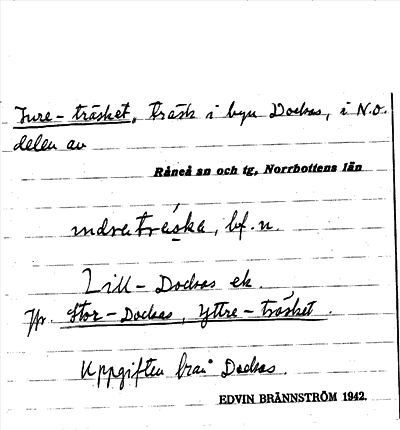 Inre-träsket, träsk i byn Dockas, i N.O.
delen av
Råneå sn och tg, Norrbottens län
indreträska, bf. n.
Lill-Dockas ek.
Jfr. Stor-Dockas, Yttre-träsket.
Uppgiften från Dockas.
EDVIN BRÄNNSTRÖM 1942.